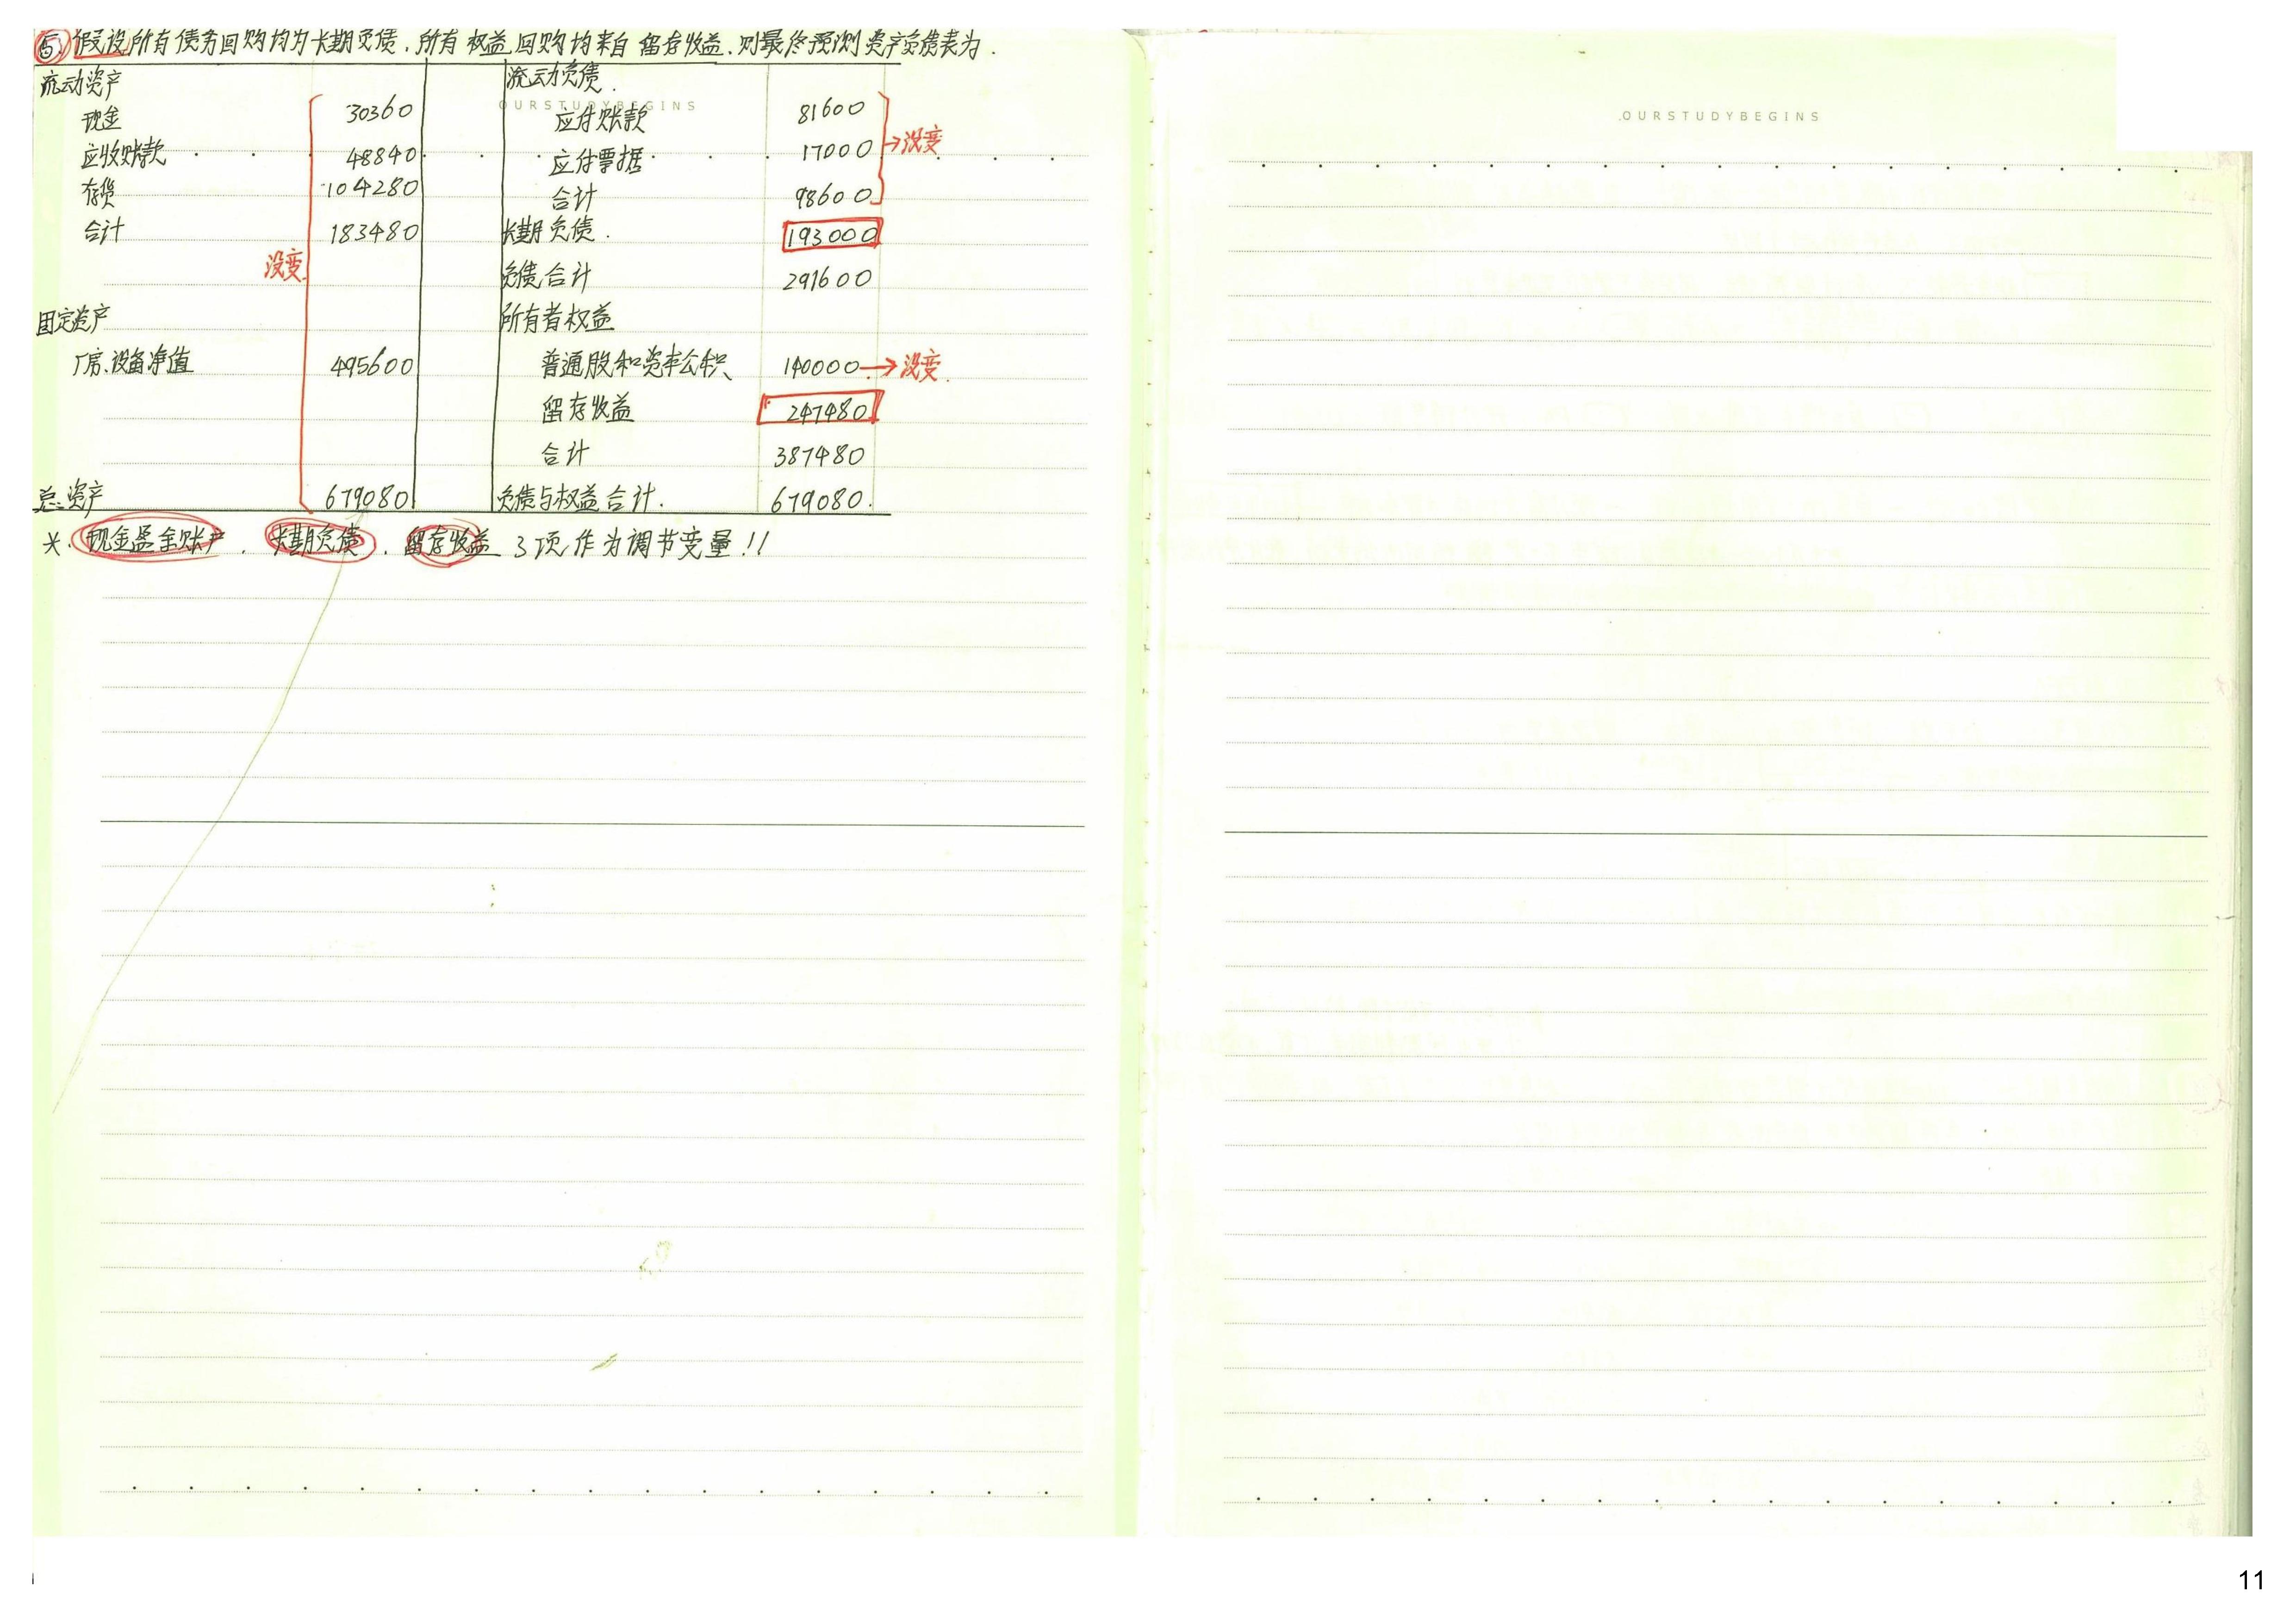 ⑤.假设所有债务回购均为长期负债.所有权益回购均来自留存收益.则最终预测资产负债表为.
流动资产 流动负债.
OURSTUDYBEGINS
现金 30360 应付账款 81600
应收账款 48840 应付票据 17000 →没变
存货 104280 合计 98600
合计 183480 长期负债. 193000
没变 负债合计 291600
固定资产 所有者权益
厂房、设备净值 495600 普通股和资本公积 140000 →没变
留存收益 247480
合计 387480
总资产 679080 负债与权益合计. 679080.
*.现金盈余账户.长期负债.留存收益 3项作为调节变量!!
.OURSTUDYBEGINS
11